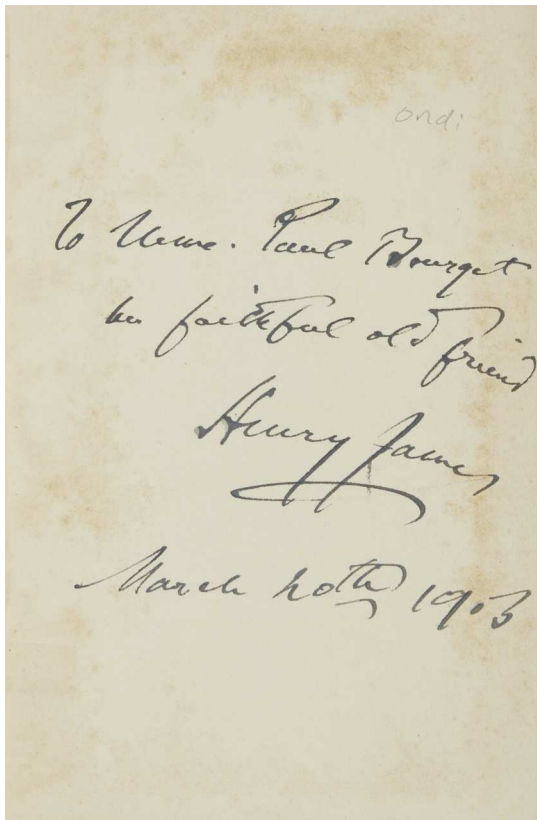 ondi
To Mme. Paul Bourget
her faithful old friend
Henry James
March 20th 1903